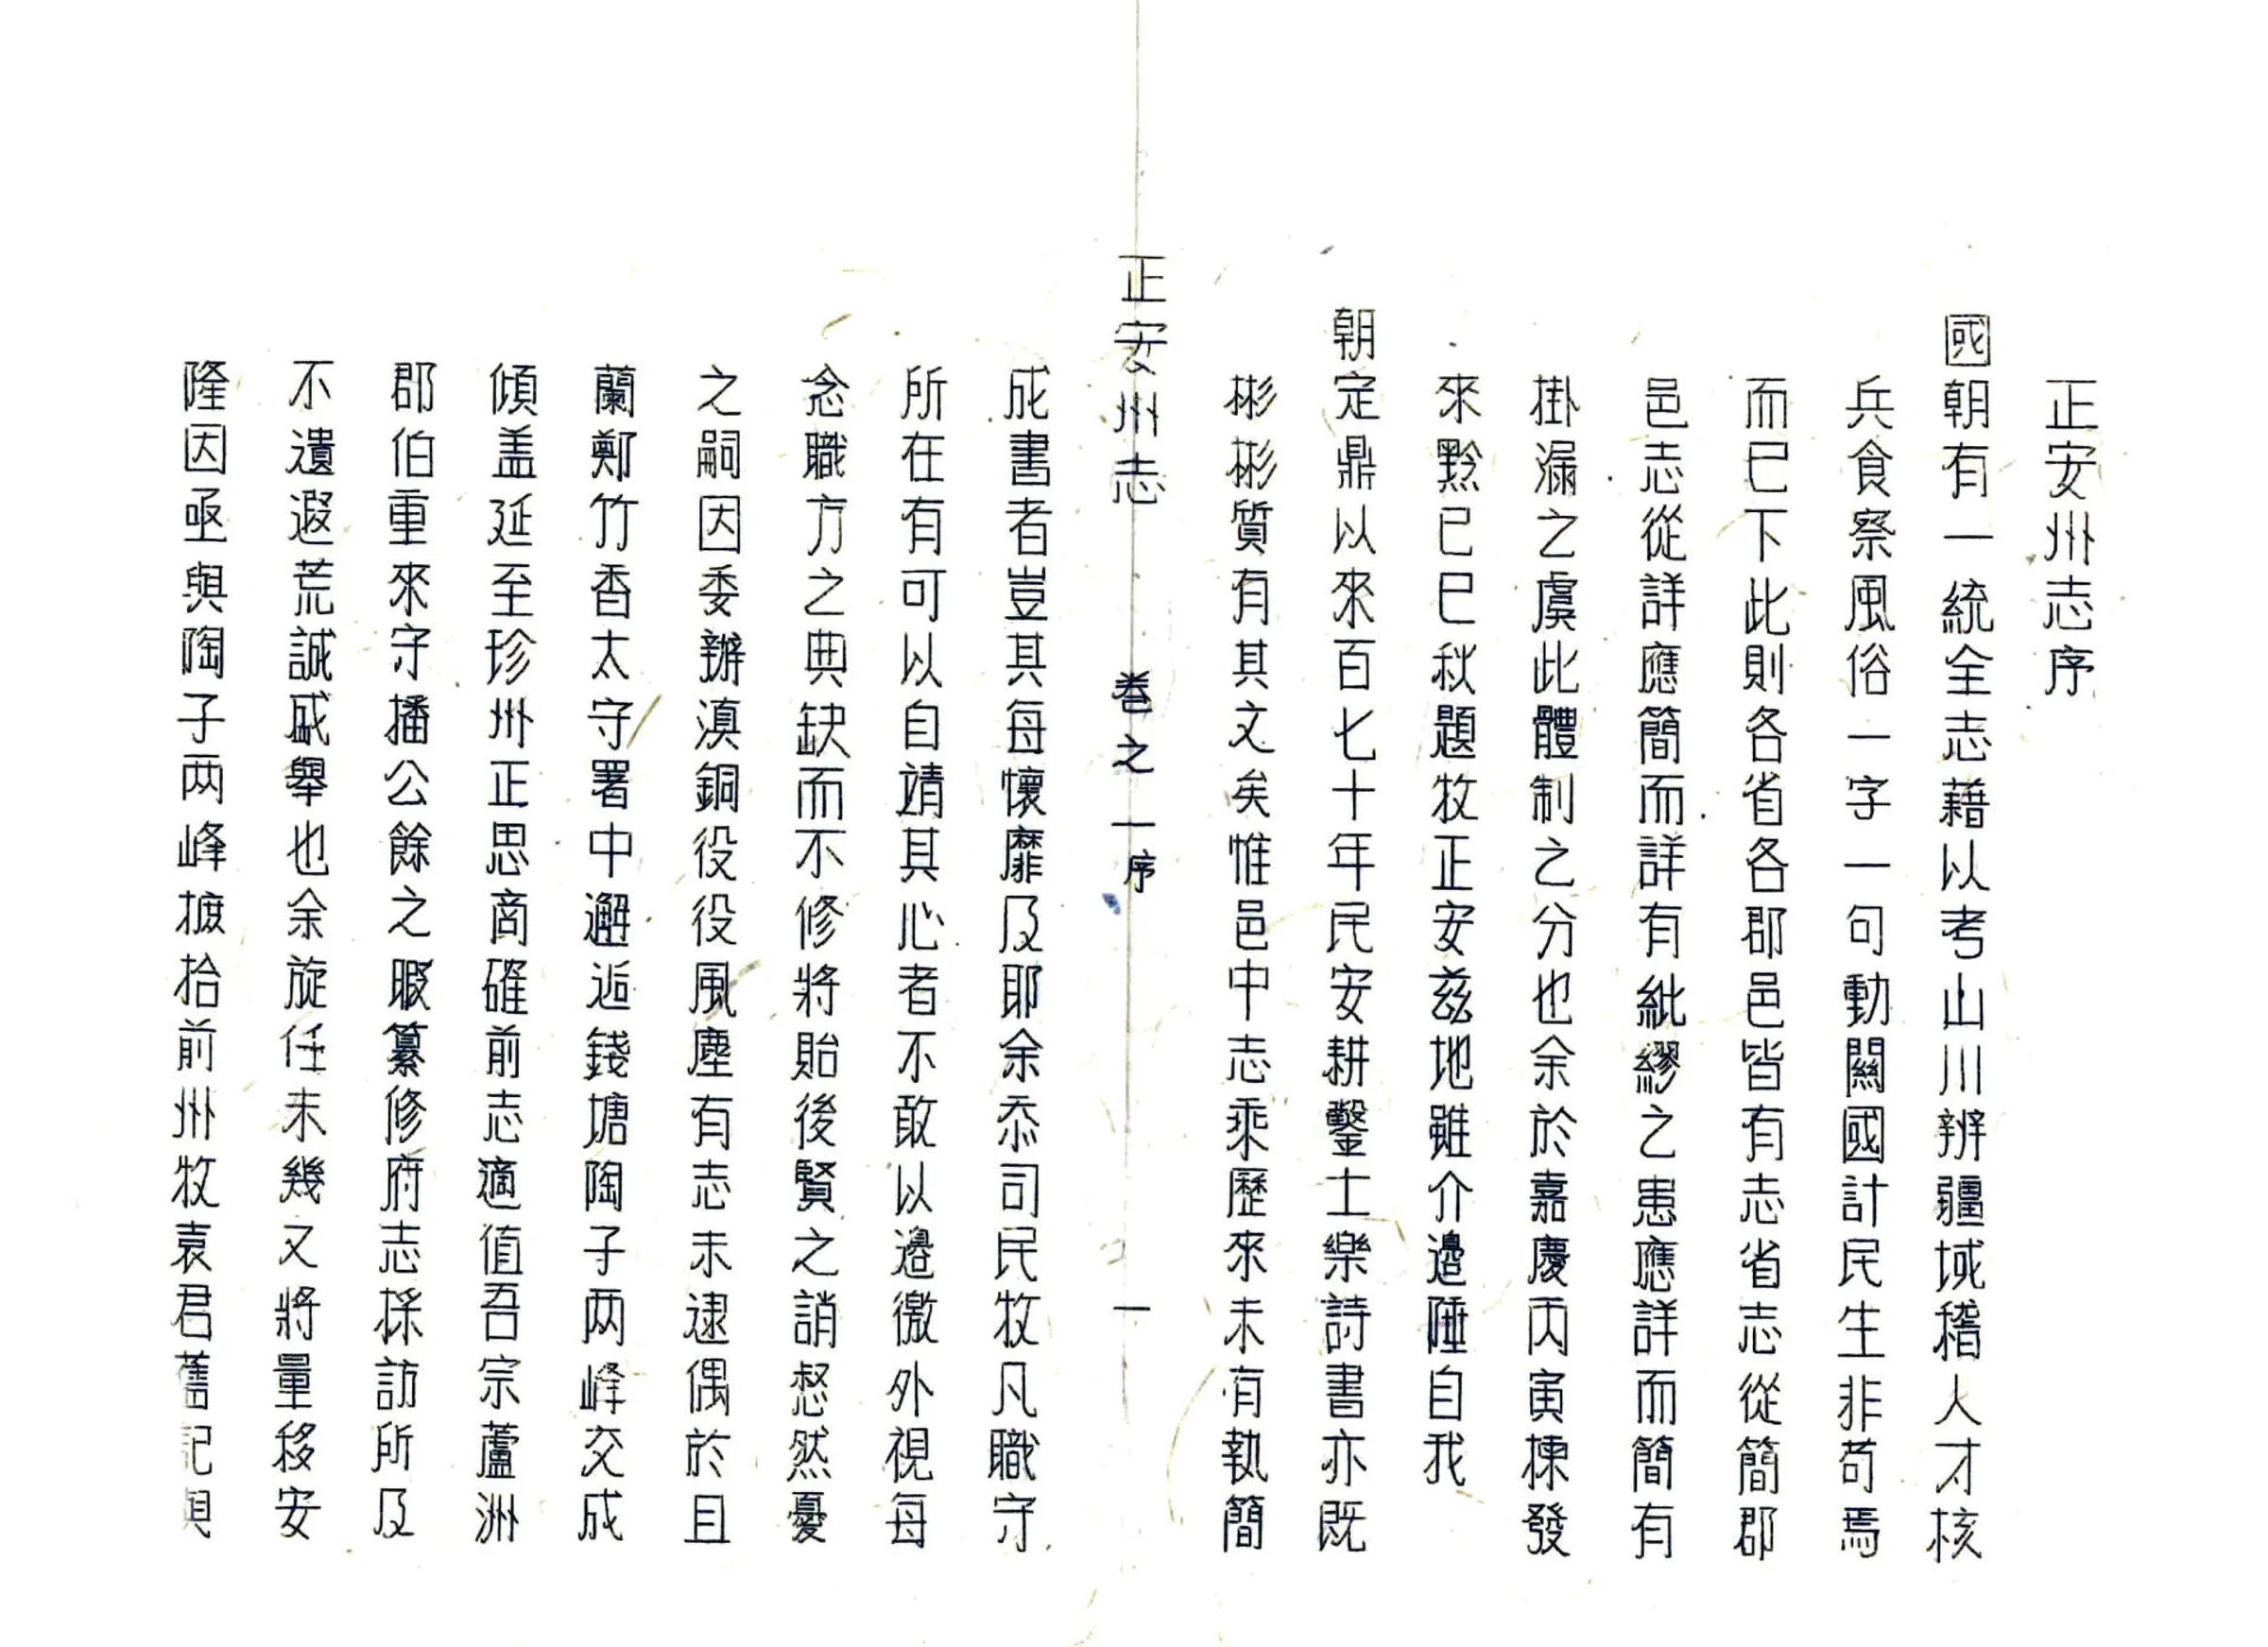 正安州志序
國朝有一統全志藉以考山川辨疆域稽人才核
兵食察風俗一字一句動關國計民生非苟焉
而巳下此則各省各郡邑皆有志省志從簡郡
邑志從詳應簡而詳有紕繆之患應詳而簡有
掛漏之虞此體制之分也余於嘉慶丙寅揀發
來黔己巳秋題牧正安茲地雖介邊陲自我
朝定鼎以來百七十年民安耕鑿士樂詩書亦既
彬彬質有其文矣惟邑中志乘歷來未有執簡
正安州志 卷之一序 一
成書者豈其每懷靡及耶余忝司民牧凡職守
所在有可以自靖其心者不敢以邊徼外視每
念職方之典缺而不修將貽後賢之誚惄然憂
之嗣因委辦滇銅役役風塵有志未逮偶於且
蘭鄭竹香太守署中邂逅錢塘陶子两峰交成
傾盖延至珍州正思商確前志適值吾宗蘆洲
郡伯重來守播公餘之暇纂修府志採訪所及
不遺遐荒誠盛舉也余旋任未幾又將量移安
隆因亟與陶子两峰摭拾前州牧袁君舊記與